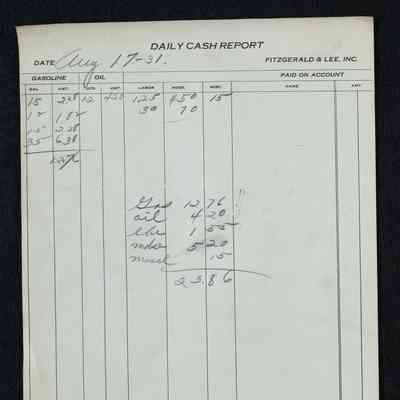 DAILY CASH REPORT
DATE Aug 17-31. FITZGERALD & LEE, INC.
GASOLINE OIL PAID ON ACCOUNT
GAL. AMT. QTS. AMT. LABOR MDSE. MISC. NAME AMT.
15 2.28 12 4.20 1.25 4.50 15
12 1.82 30 70
15 2.28
35 6.38
12.76
Gas 12 76
oil 4 20
1 55
mdse 5 20
15
23.86